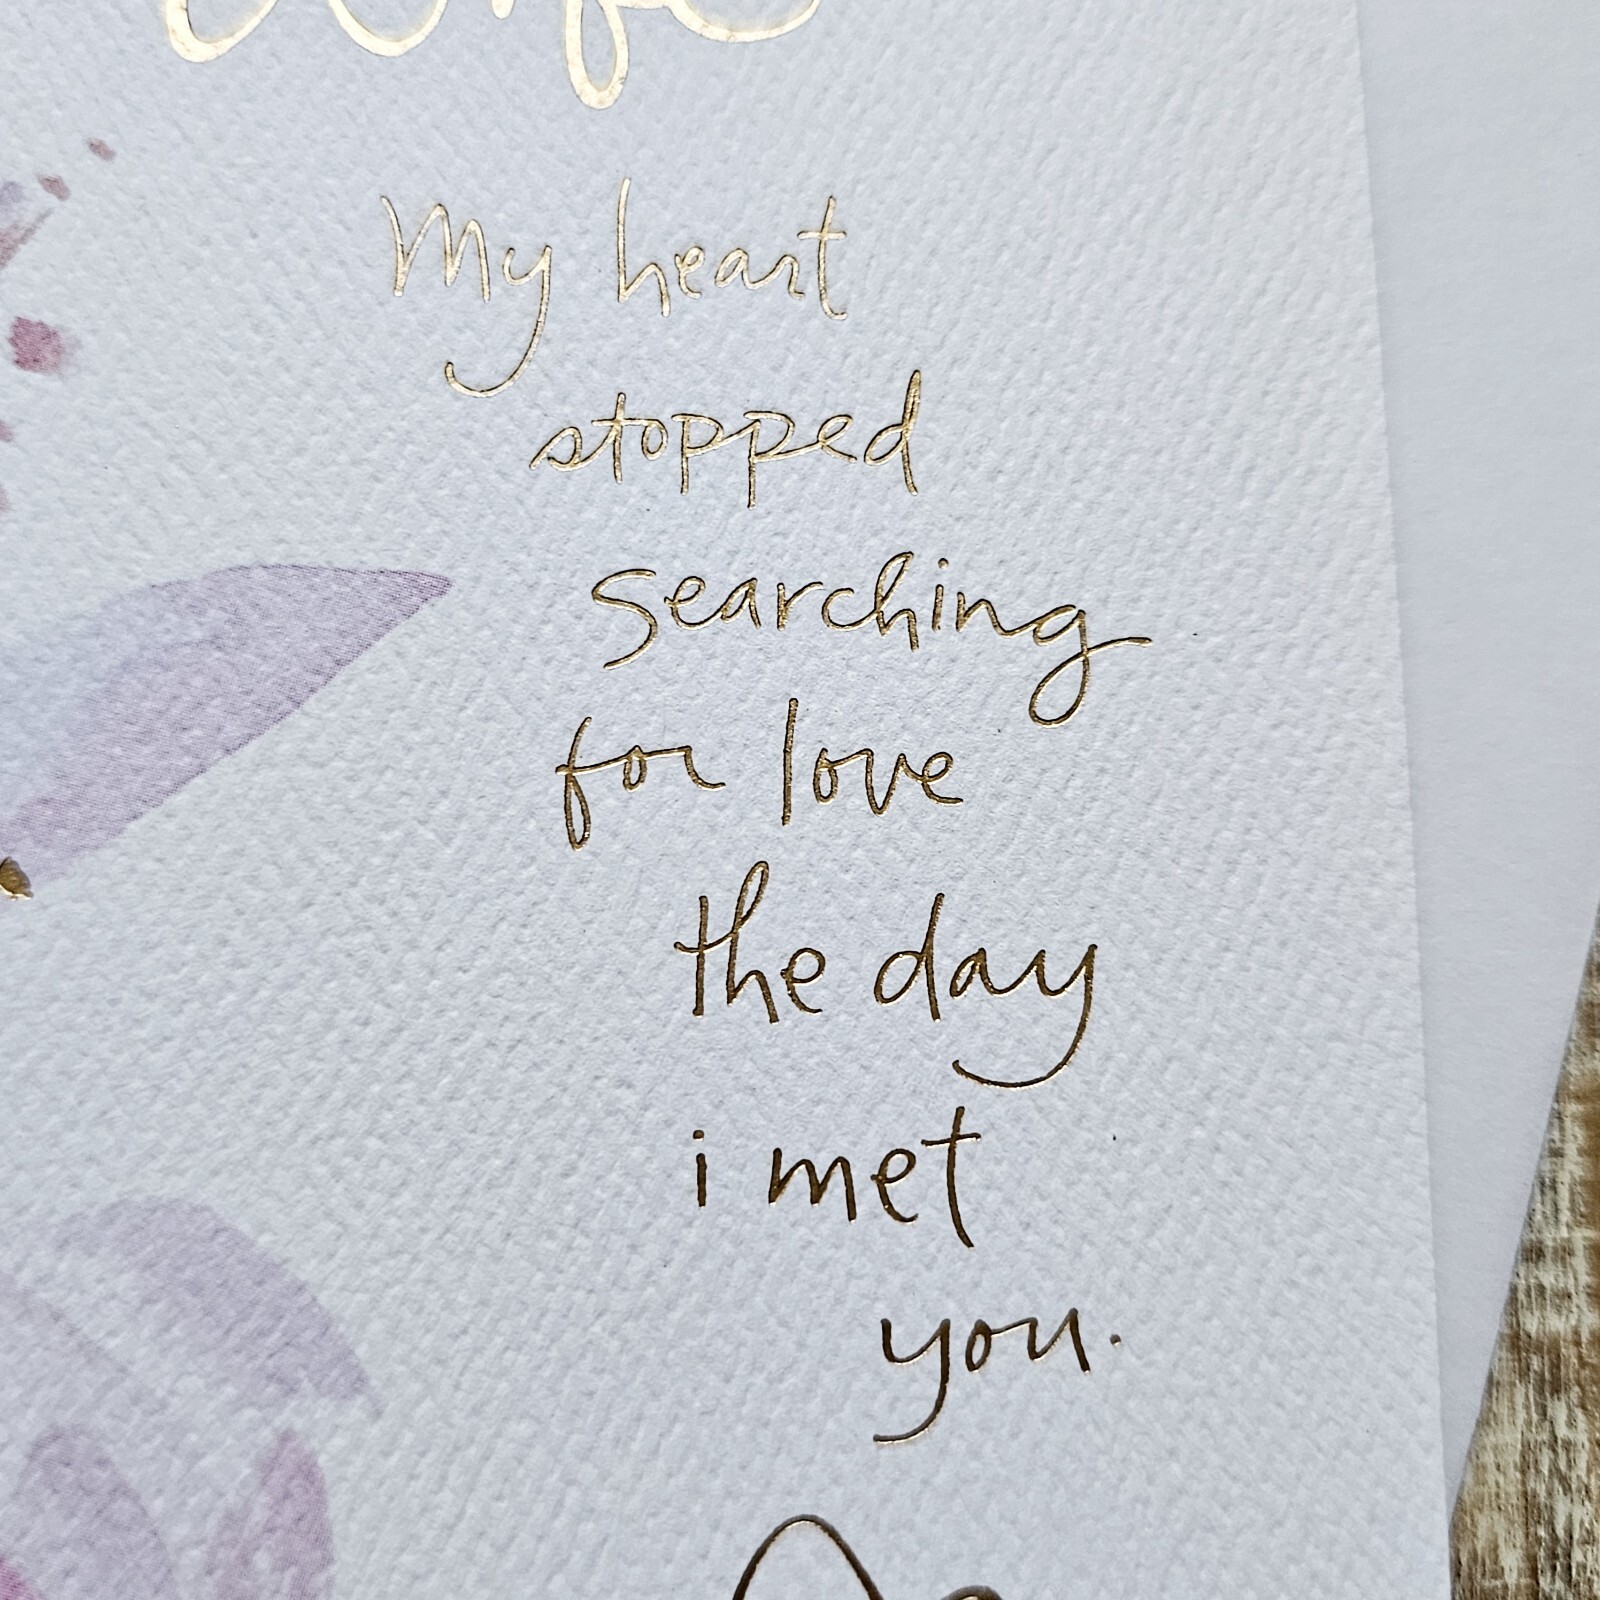 My heart
stopped
searching
for love
the day
i met
you.